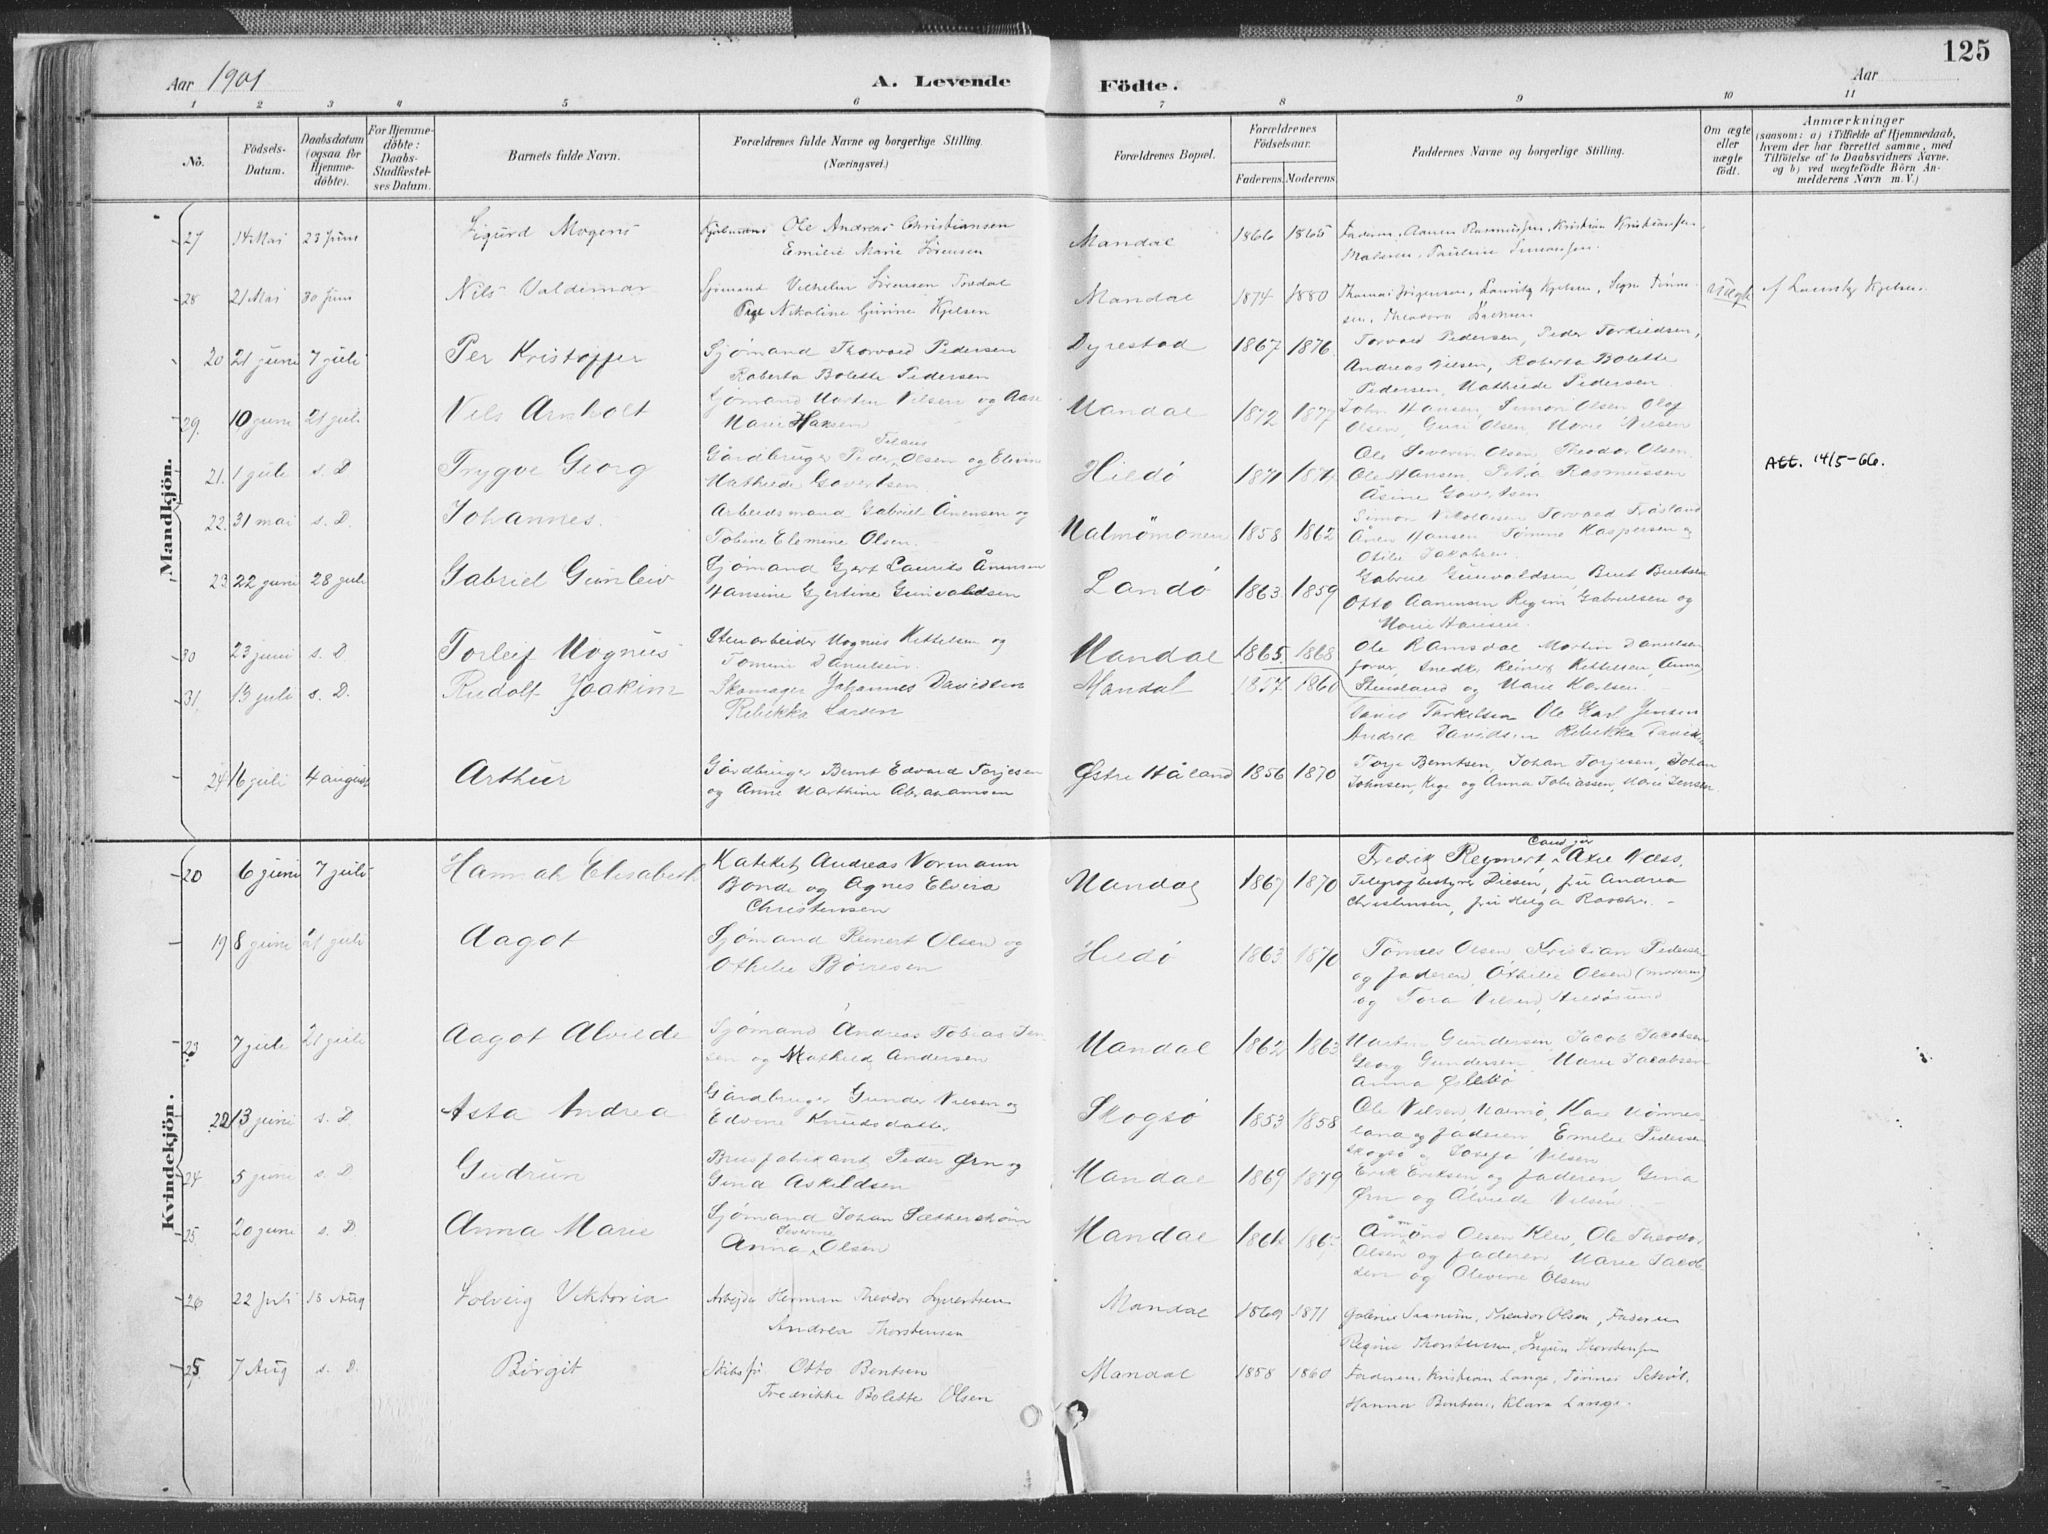 125
Aar 1901 A. Levende Födte. Aar
1 2 3 4 5 6 7 8 9 10 11
No. Födsels-Datum. Daabsdatum (ogsaa for Hjemme-döbte). For Hjemme-döbte: Daabs-Stadfæstel-ses Datum. Barnets fulde Navn. Forældrenes fulde Navne og borgerlige Stilling. (Næringsvei.) Forældrenes Bopæl. Forældrenes Födselsaar. Faderens. Moderens. Faddernes Navne og borgerlige Stilling. Om ægte eller uægte födt. Anmærkninger (saasom: a) i Tilfælde af Hjemmedaab, hvem der har forrettet samme, med Tilföielse af to Daabsvidners Navne. og b) ved uægtefödte Börn Anmelderens Navn m. V.)
Mandkjön.
27 14 Mai 23 Juni Sigurd Mogens Ole Andreas Christiansen Mandal 1866 1865 Faderen, Aanen Rasmussen, Kristian Kristiansen,
Emilie Marie Sørensen Moderen, Pauline Simonsen.
28 21 Mai 30 Juni Nils Valdemar Sjømand Vilhelm Sørensen Mandal 1874 1880 Thomas Jörgensen, Lauritz Kjelsen, Signe Tönne-
Pige Nikoline Gurine Kjelsen sen, Theodora uægte af Lauritz Kjelsen
20 21 juni 7 juli Per Kristoffer Sjømand Thorvald Pedersen Dyrestad 1867 1876 Torvald Pedersen, Peder Torkildsen,
Roberta Bolette Pedersen Andreas Nilsen, Roberta Bolette
Pedersen, Mathilde Pedersen
29. 10 juni 21 juli Nils Arnholt Sjømand Martin Nilsen og Aase Mandal 1872 1877 John Hansen, Simon Olsen, Olaf
Marie Hansen Olsen, Guri Olsen, Marie Nilsen
21. 1 juli s. D Trygve Georg Gårdbruger Peder Olsen og Elevine Hildø 1871 Ole Severin Olsen Theodor Olsen. Att. 14/5-66.
Mathilde Govertsen Ole Hansen, Petra Rasmussen
Åsine Govertsen
22. 31 mai s. D. Johannes. Arbeidsmand Gabriel Ånensen og Malmømonen 1858 1862 Simon Nikolaisen Torvald Fråsland
Tobine Elemine Olsen. Ånen Hansen Tømine Kaspersen og
Otilie Jakobsen
23 22 juni 28 juli Gabriel Gunleiv Sjømand Gjert Laurits Ånensen Landø 1863 1859 Gabriel Gunvaldsen, Berit Bentsen
Hansine Gjertine Gunvaldsen Otto Aanensen Regine Gabrielsen og
Marie Hansen.
30 23 juni s. D Torleif Magnus Stenarbeider Magnus Kittelsen og Mandal 1865. 1868 Ole Ramsdal Martin Danielsen
Tomine Danielsen. Snedker Reinert Kittelsen, Anna
31. 13 juli s. D. Rudolf Joakim Skomager Johannes Davidsen Mandal 1857 1860 Stensland og Marie Karlsen.
Rebekka Larsen David Tarkelsen Ole Karl Jensen
Andrea Davidsen Rebekka
24 16 juli 4 august Arthur Gårdbruger Bernt Edvard Torjesen Østre Håland 1856 1870 Torje Berntsen, Johan Torjesen, Johan
og Anne Marthine Abrahamsen Johnsen, Kige og Anna Tobiassen, Marie Jensen
Kvindekjön.
20 6 juni 7 juli Hannah Elisabeth Kateket Andreas Normann Mandal 1867 1870 Fredrik Reymert, Cand jur Axel Næss,
Bonde og Agnes Elvira Telegrafbestyrer Diesen, fru Andrea
Christensen Christensen, fru Helga Rasch.
19 8 juni 21 juli Aagot Sjømand Reinert Olsen og Hildø 1863 1870 Tønnes Olsen, Kristian Pedersen
Othilie Børresen og faderen, Othilie Olsen (moderen)
og Tora Nilsen, Hildøsund
23 7 juli 21 juli Aagot Alvilde Sjømand Andreas Tobias Jen- Mandal 1862 1863 Martin Gundersen, Jacob Jacobsen
sen og Mathilde Andersen Georg Gundersen, Marie Jacobsen
Anna Øslebø
22 13 juni s. D Asta Andrea Gårdbruger Gunder Nilsen og Skogsø 1853 1858 Ole Nilsen Malmø, Kare Mønnes-
Edvine Knudsdatter land og faderen, Emelie Pedersen
Skogsø og Josefa Nilsen
24 5 juni s. D Gudrun Brusfabrikant Peder Ørn og Mandal 1869 1879 Erik Eriksen og faderen Gina
Gina Askildsen Ørn og Alvilde Nilsen
25 20 juni s. D. Anna Marie Sjømand Johan Sæthershøin Mandal Åmund Olsen Klev, Ole Theodor
Anna Severine Olsen Olsen og faderen, Marie Jacob-
sen og Olevine Olsen
26 22 Juli 18 Aug Solveig Viktoria Arbejder Herman Theodor Syvertsen Mandal 1869 1871 Theodor Olsen, Faderen
Andrea Thorstensen Regine Thorstensen, Thorstensen
25 7 Aug s. D. Birgit Otto Bentsen Mandal 1858 1860 Faderen, Kristian Lange, Tönnes
Fredrikke Bolette Olsen Hanna Bentsen, Klara Lange.